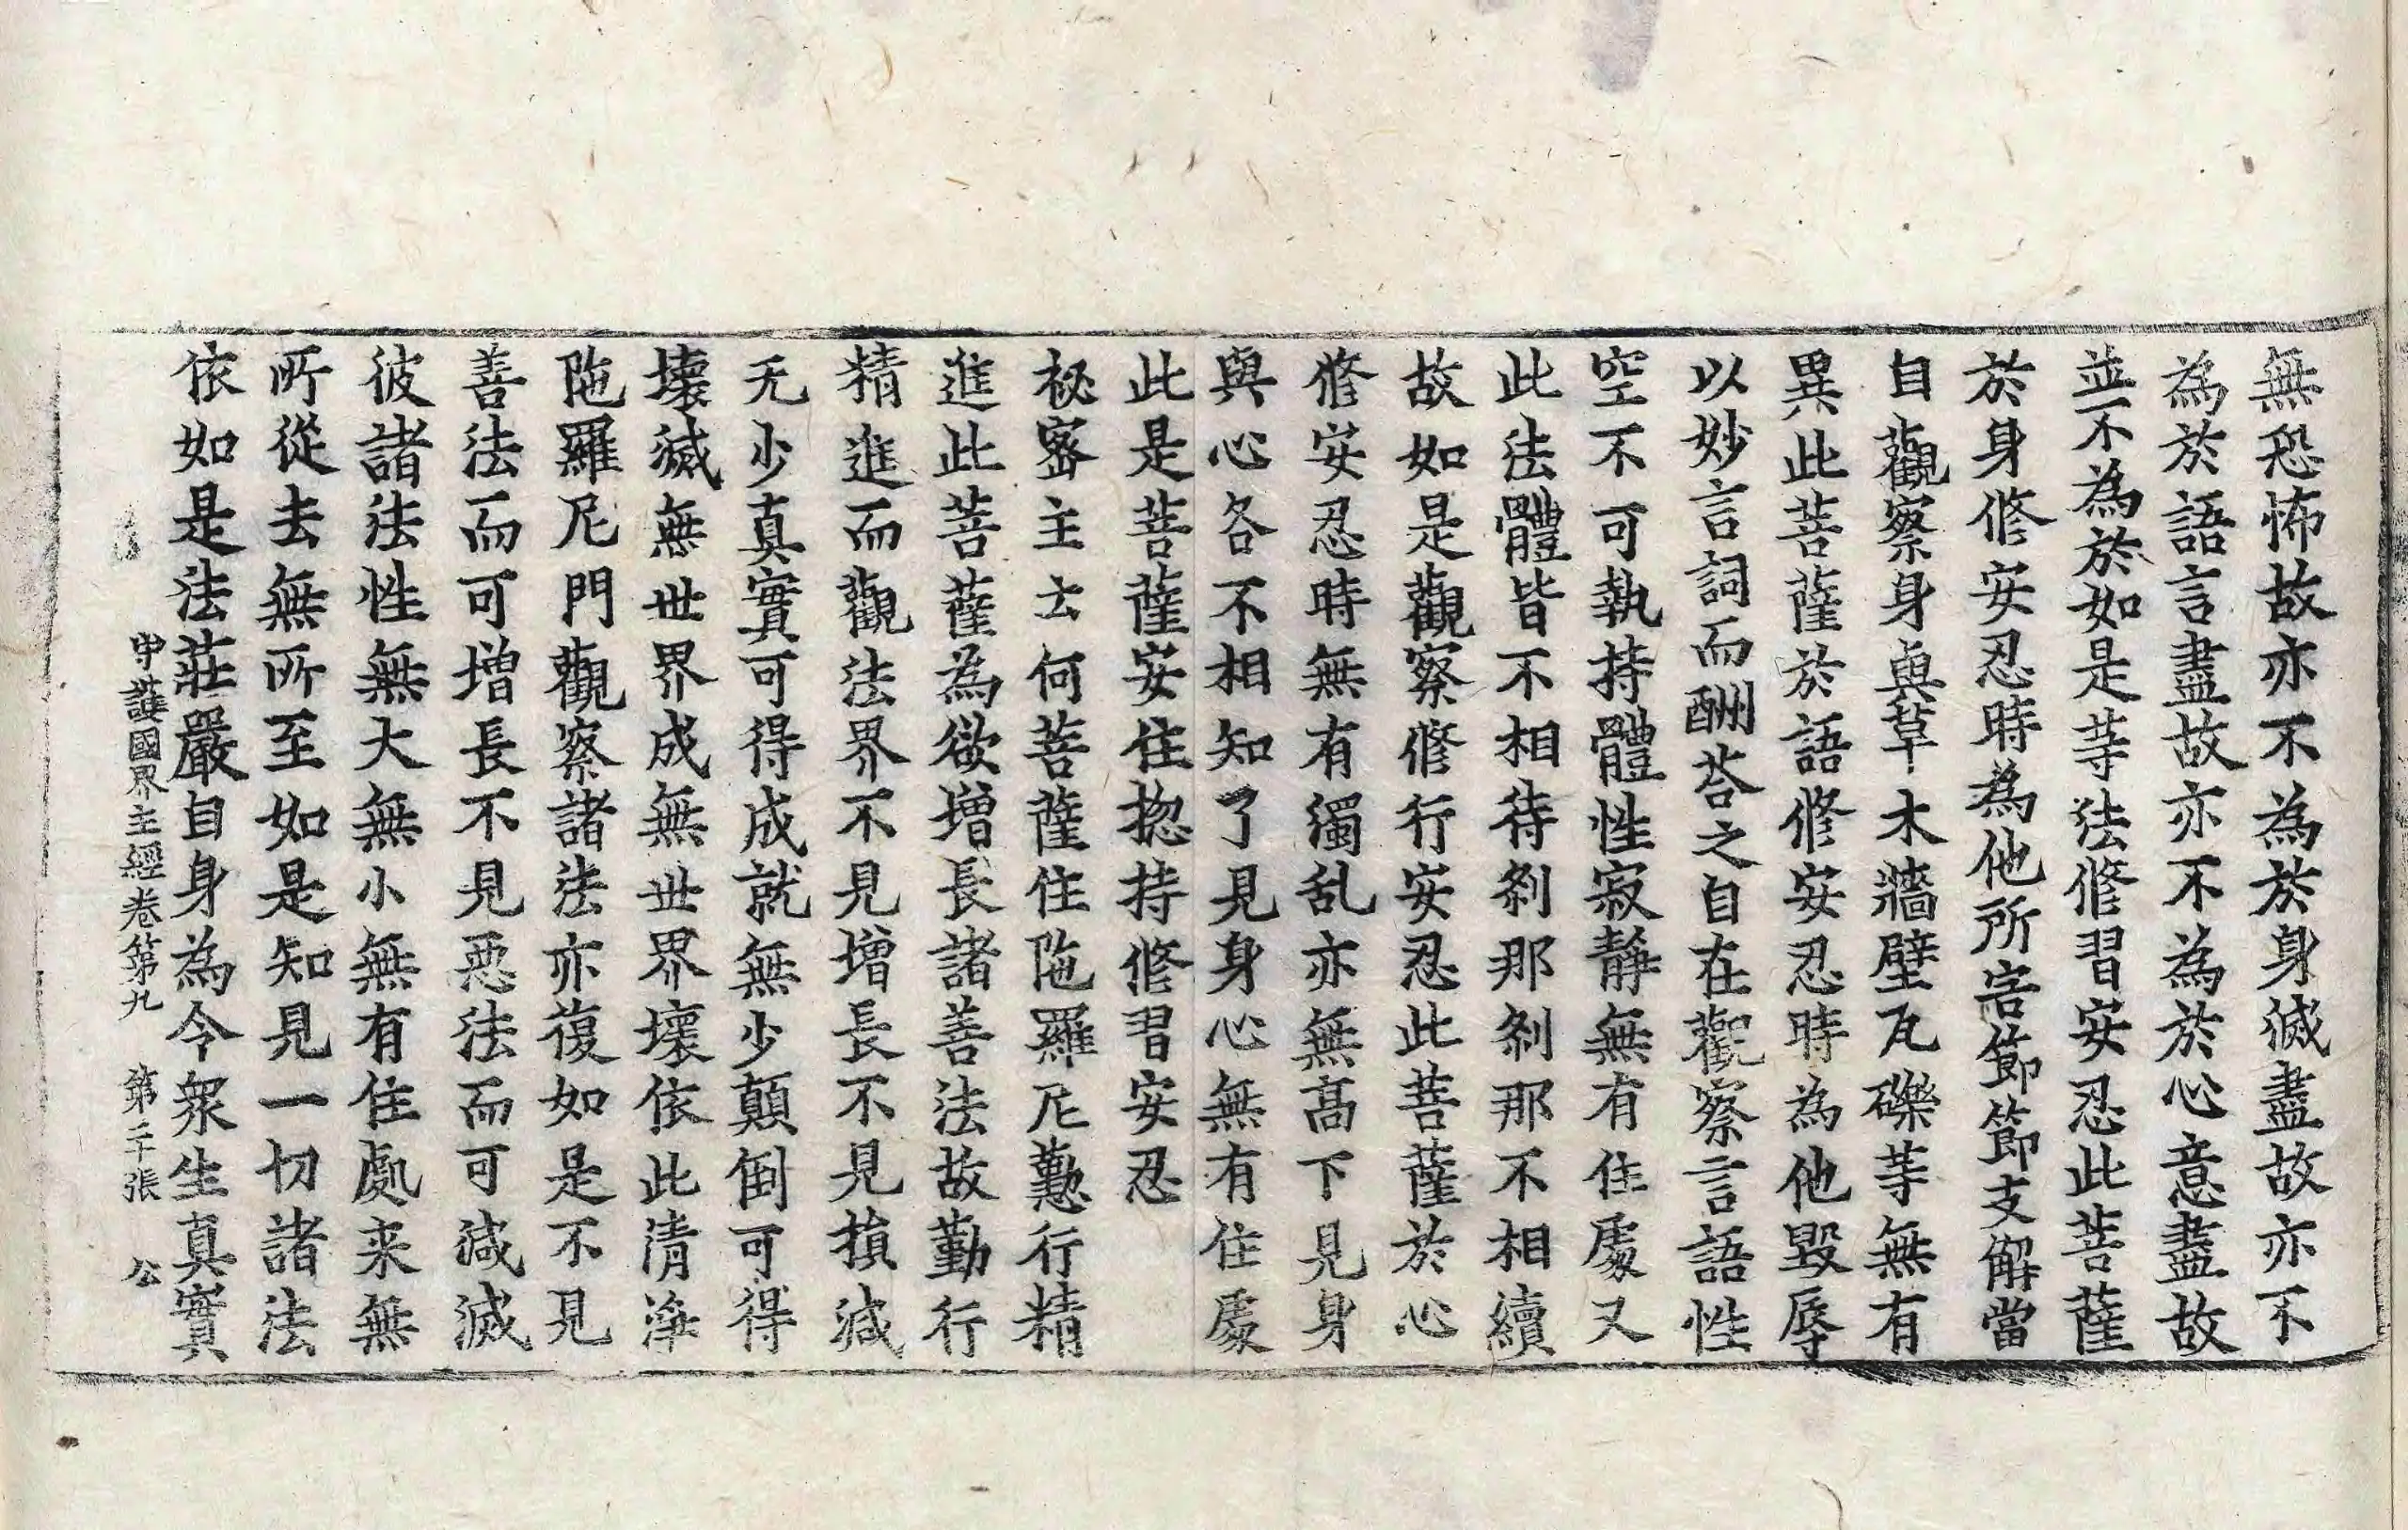 無恐怖故亦不為於身滅盡故亦不
為於語言盡故亦不為於心意盡故
並不為於如是䓁法修習安忍此菩薩
於身修安忍時為他所害節節支解當
自觀察身與草木牆壁瓦礫䓁無有
異此菩薩於語修安忍時為他毀辱
以妙言詞而酬荅之自在觀察言語性
空不可執持體性寂靜無有住處又
此法體皆不相待剎那剎那不相續
故如是觀察修行安忍此菩薩於心
修安忍時無有濁乱亦無高下見身
與心各不相知了見身心無有住處
此是菩薩安住揔持修習安忍
秘密主云何菩薩住陁羅尼懃行精
進此菩薩為欲增長諸善法故勤行
精進而觀法界不見增長不見損減
无少真實可得成就無少顛倒可得
壞滅無世界成無世界壞依此清淨
陁羅尼門觀察諸法亦復如是不見
善法而可增長不見惡法而可減滅
彼諸法性無大無小無有住處来無
所從去無所至如是知見一切諸法
依如是法莊嚴自身為令眾生真實
守護國界主經卷第九 第二十張 公